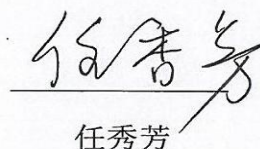 任秀芳
任秀芳